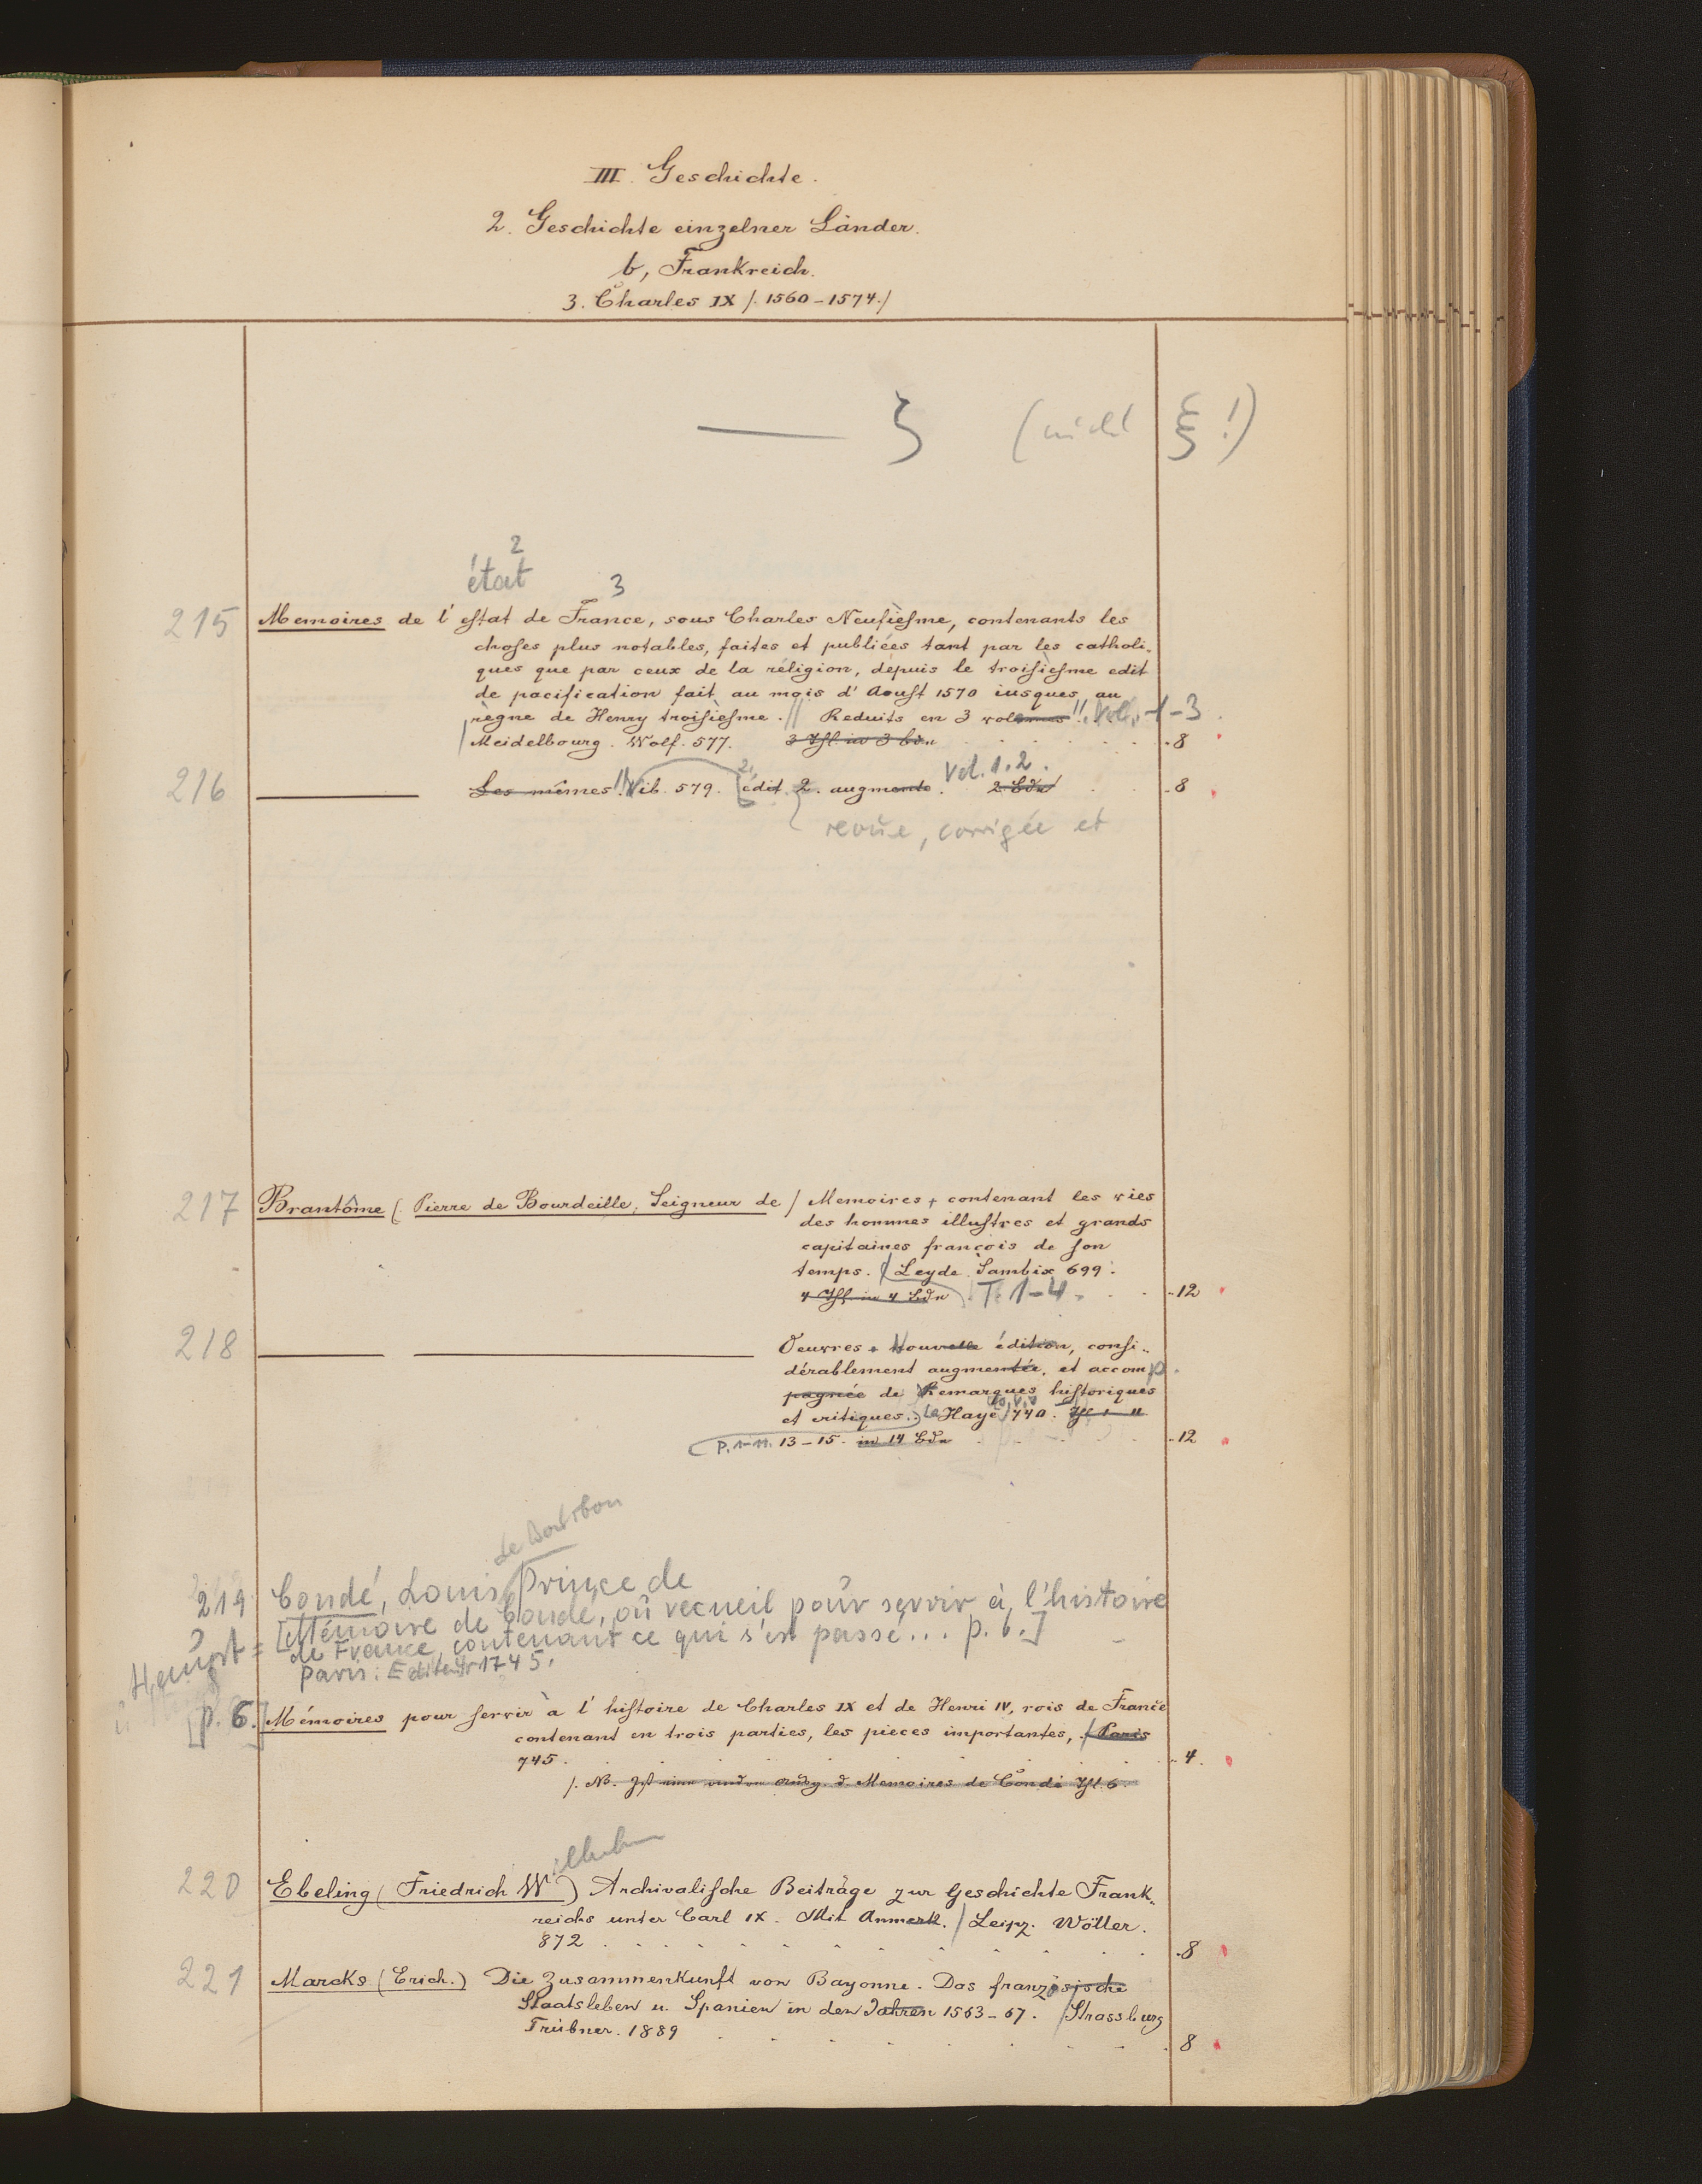 III. Geschichte.
2. Geschichte einzelner Länder.
b, Frankreich.
3. Charles IX /. 1560-1574./
— ξ (nicht ξ!)
2
état 3
215 Memoires de l'estat de France, sous Charles Neufiesme, contenants les
choses plus notables, faites et publiées tant par les catholi-
ques que par ceux de la réligion, dépuis le troisièsme edit
de pacification fait au mois d'Aoust 1570 iusques au
règne de Henry troisièsme. // Reduits en 3 volumes!! Vol. 1-3.
/Meidelbourg. Wolf. 577. 3 Thl. in 3 Bdn .8
Vol. 1.2.
216 — Les mêmes!! Vib. 579. [édit. 2. augmente. 2 Bdn .8
revûe, corrigée et
217 Brantôme (. Pierre de Bourdeille, Seigneur de / Memoires + contenant les vies
des hommes illustres et grands
capitaines françois de son
temps. /Leyde. Sambix 699.
4 Thl. in 4 Bdn T. 1-4. .12
218 — — Oeuvres + Nouvelle édition, consi-
dérablement augmentée, et accomp.
pagnée de Remarques historiques
et critiques. La Haye 740. Thl. 1-11
P. 1-11. 13-15. in 14 Bdn .12
de Bourbon
219 Condé, Louis Prince de
[Mémoire de Condé, où recueil pour servir à l'histoire
de France, contenant ce qui s'est passé... p. 6.]
Paris: Editeur 1745.
[p. 6.] Mémoires pour servir à l'histoire de Charles IX et de Henri IV, rois de France
contenant en trois parties, les pieces importantes, /Paris
745. .4.
/. NB. Ist eine andre Ausg. d. Memoires de Condé Thl. 6
ilhelm
220 Ebeling (Friedrich W) Archivalische Beiträge zur Geschichte Frank-
reichs unter Carl IX. Mit Anmerk. / Leipz. Wöller.
872 .8
221 Marcks (Erich.) Die Zusammenkunft von Bayonne. Das französische
Staatsleben u. Spanien in den Jahren 1563-67. /Strassburg
Trübner. 1889 .8